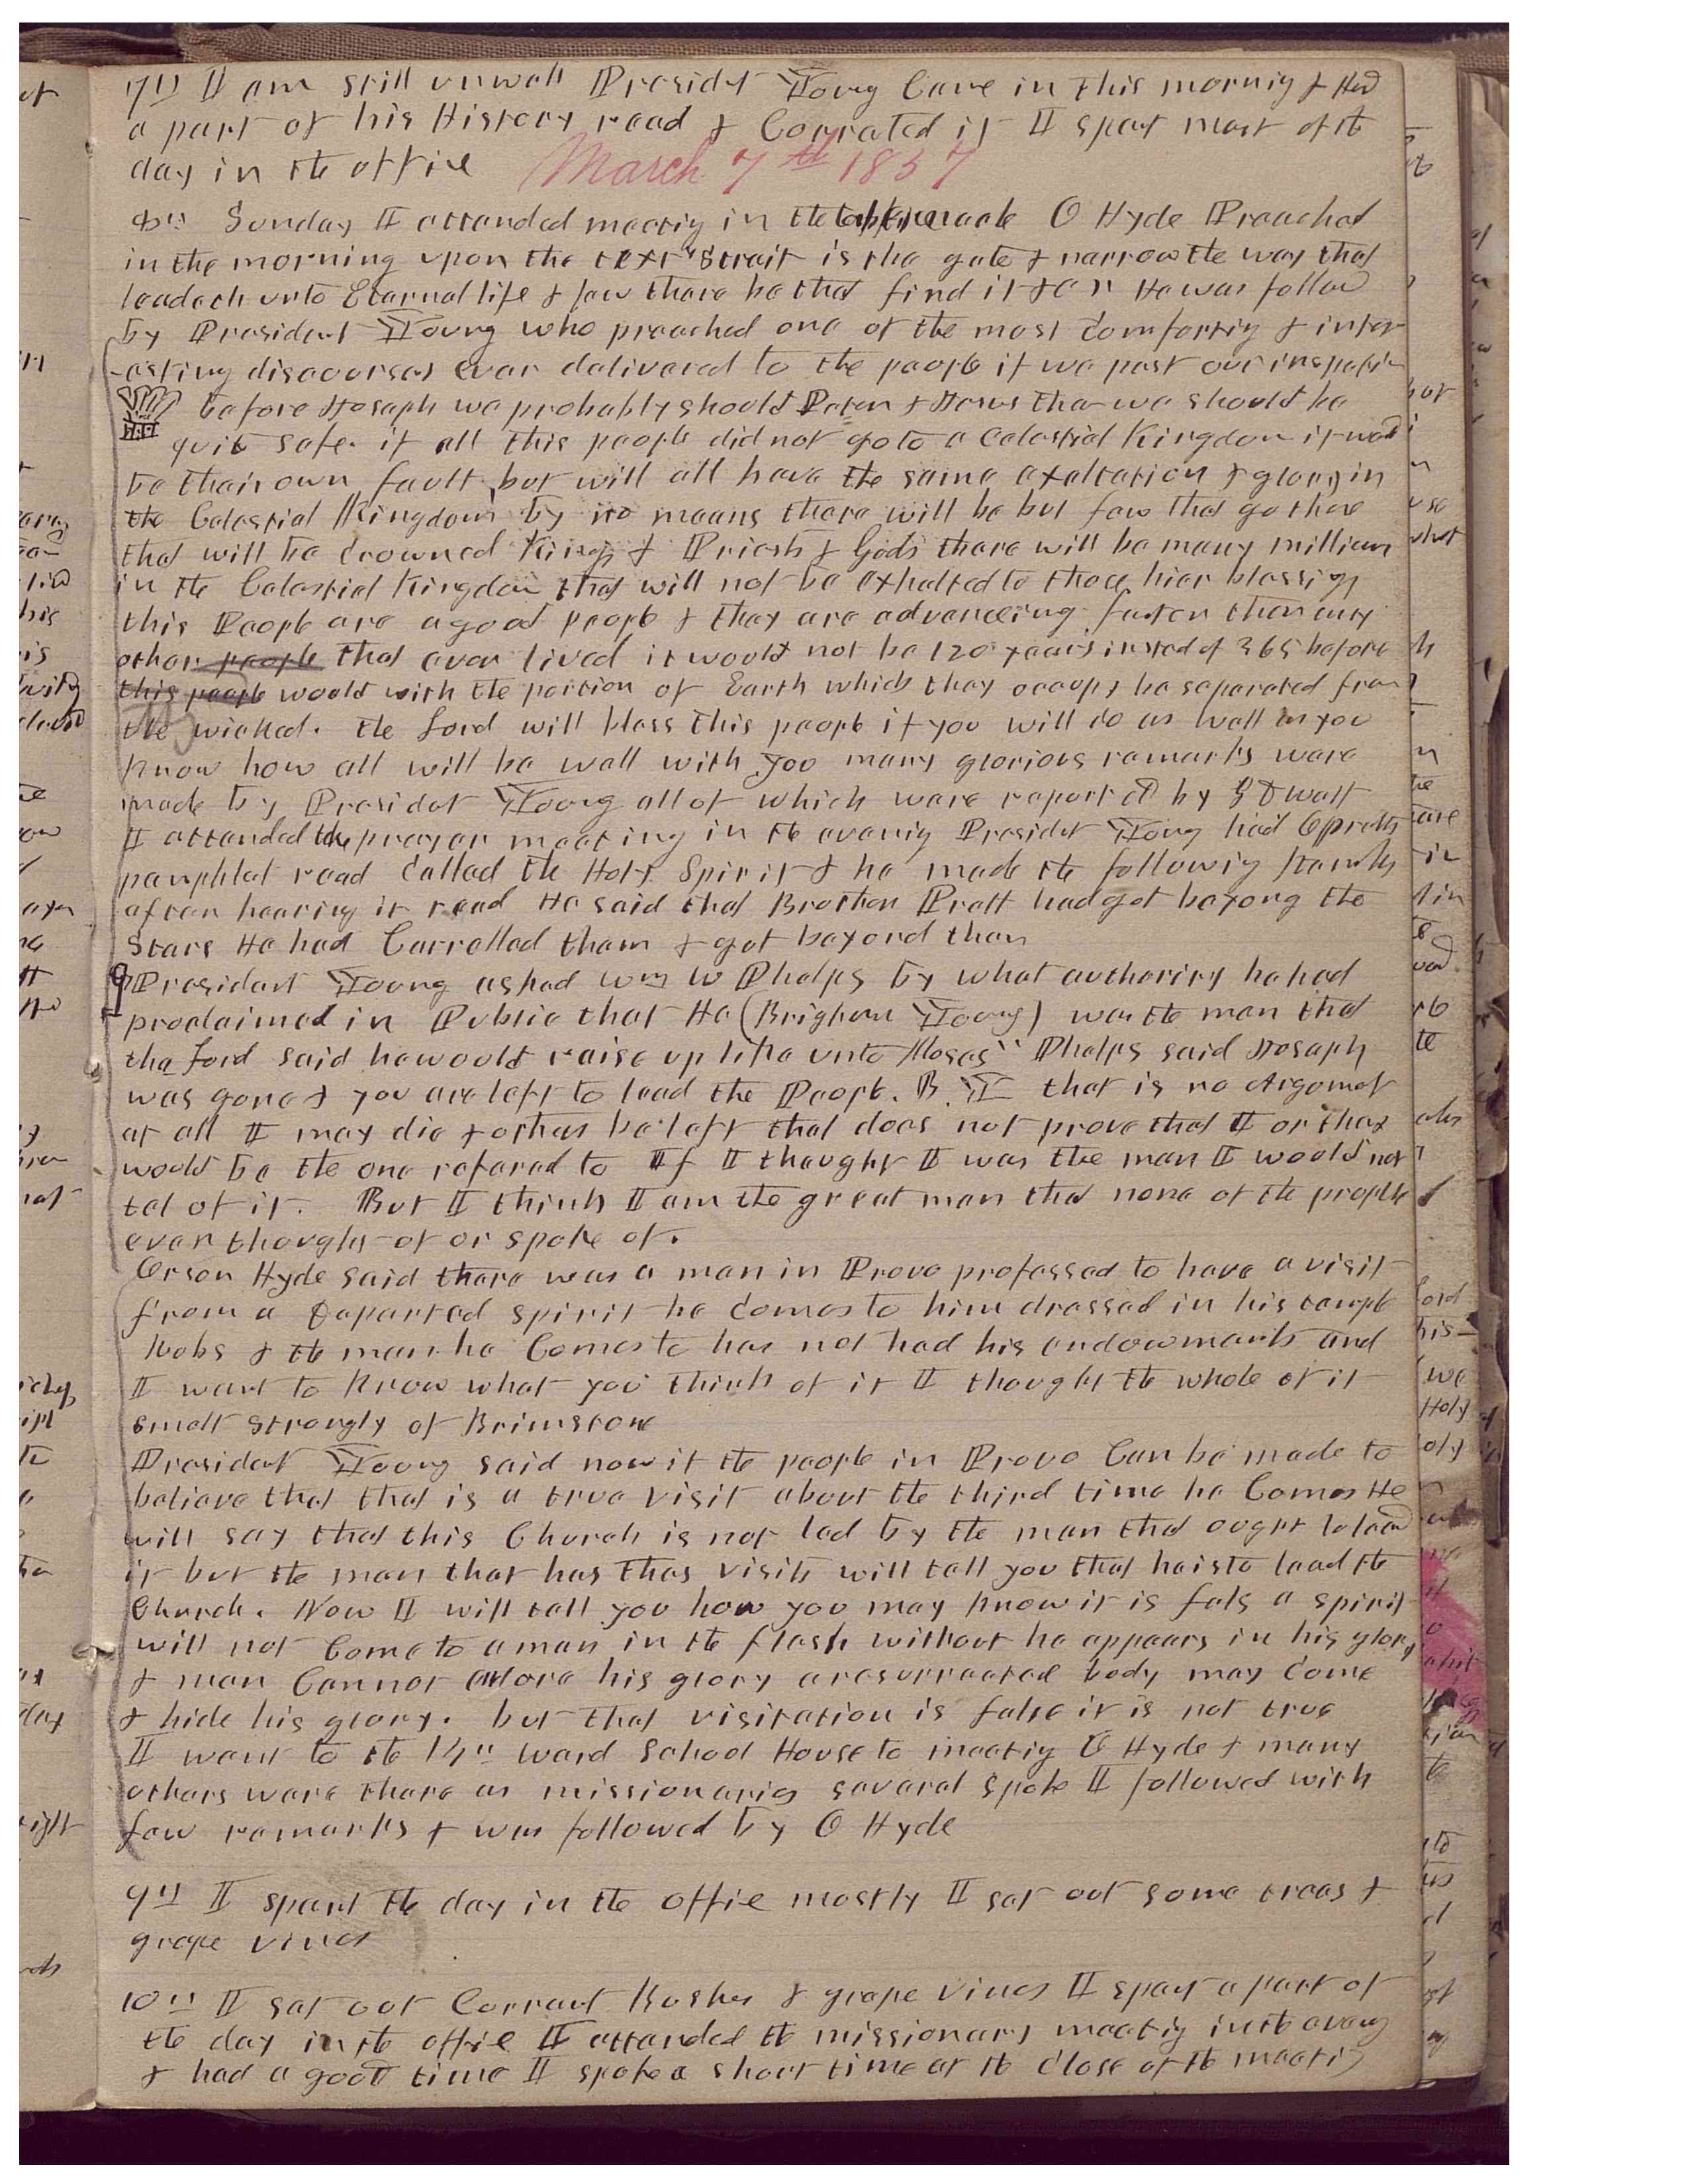 7th I am still unwell Presidet Young Came in this mornig & Had
a part of his History read & Corrected it I spent most of the
day in the office
March 7th 1857
8th Sunday I attended meetig in the tabernacle O Hyde Preached
in the morning upon the text "Strait is the gate & narrow the way that
leadeth unto Eternal life & few there be that find it &c" He was followd
by President Young who preached one of the most comfortig & inter
-esting discourses ever delivered to the people if we past our inspectin
before Joseph we probably should Peter & Jesus then we should be
quite safe. if all this people did not go to a Celestial Kingdom it would
be their own fault, but will all have the same exaltation & glory in
the Celestial Kingdom by no means there will be but few that go there
that will be crowned Kings & Priests & Gods there will be many million
in the Celestial Kingdom that will not be exhalted to those hier blessigs
this People are a good people & they are advanceing faster then any
other people that ever lived it would not be 120 years insted of 365 before
this people would with the portion of Earth which they occupy be seperated from
the wicked. the Lord will bless this people if you will do as well as you
know how all will be well with you many glorious remarks were
made by Presidet Young all of which were reported by G D Watt
I attended the prayer meeting in the evenig Presidet Young had O Pratts
pamphlet read called the Holy Spirit & he made the followig remarks
after hearing it read He said that Brother Pratt had got beyong the
Stars He had Correlled them & got beyond them
President Young asked Wm W Phelps by what authority he had
proclaimed in Public that He (Brigham Young) was the man that
the Lord said he would raise up like unto Moses" Phelps said Joseph
was gone & you are left to lead the People. B. Y that is no Argumet
at all I may die & others be left that does not prove that I or they
would be the one refered to If I thought I was the man I would not
tel of it. But I think I am the great man that none of the people
ever thought of or spoke of.
Orson Hyde said there was a man in Provo professed to have a visit
from a Departed spirit he comes to him dressed in his temple
Robs & the man he Comes to has not had his endowments and
I want to Know what you think of it I thought the whole of it
smelt strongly of Brimstone
President Young said now if the people in Provo Can be made to
believe that that is a true visit about the third time he Comes He
will say that this Church is not led by the man that ought to lead
it but the man that has thes visits will tell you that he is to lead the
Church. Now I will tell you how you may know it is fals a spirit
will not Come to a man in the flesh without he appears in his glory
& man Cannot endore his glory a resurrected body may come
& hide his glory. but that visitation is false it is not true
I went to the 14th ward School House to meetig O Hyde & many
others were there as missionaries several spoke I followed with
few remarks & was followed by O Hyde
9th I spent the day in the office mostly I set out some trees &
grape vines
10th I set out Corrant Bushes & grape vines I spent a part of
the day in the office I attended the missionary meetig in the eveng
& had a good time I spoke a short time at the close of the meetig